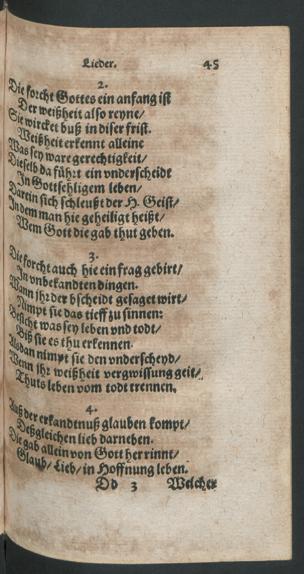 Lieder. 45
2.
Die forcht Gottes ein anfang ist
Der weißheit also reyne/
Sie wircket buß in diser frist.
Weißheit erkennt alleine
Was sey ware gerechtigkeit/
Dieselb da führt ein vnderscheidt
In Gottsehligem leben/
Darein sich schleußt der H. Geist/
In dem man hie geheiligt heißt/
Wem Gott die gab thut geben.
3.
Die forcht auch hie ein frag gebirt/
In vnbekandten dingen.
Wann jhr der bscheidt gesaget wirt/
Nimpt sie das tieff zu sinnen:
Besicht was sey leben vnd todt/
Biß sie es thu erkennen.
Alsdan nimpt sie den vnderscheyd/
Wenn jhr weißheit vergwissung geit/
Thuts leben vom todt trennen.
4.
Auß der erkandtnuß glauben kompt/
Deßgleichen lieb darneben.
Die gab allein von Gott her rinnt/
Glaub/ Lieb/ in Hoffnung leben.
Dd 3 Welcher